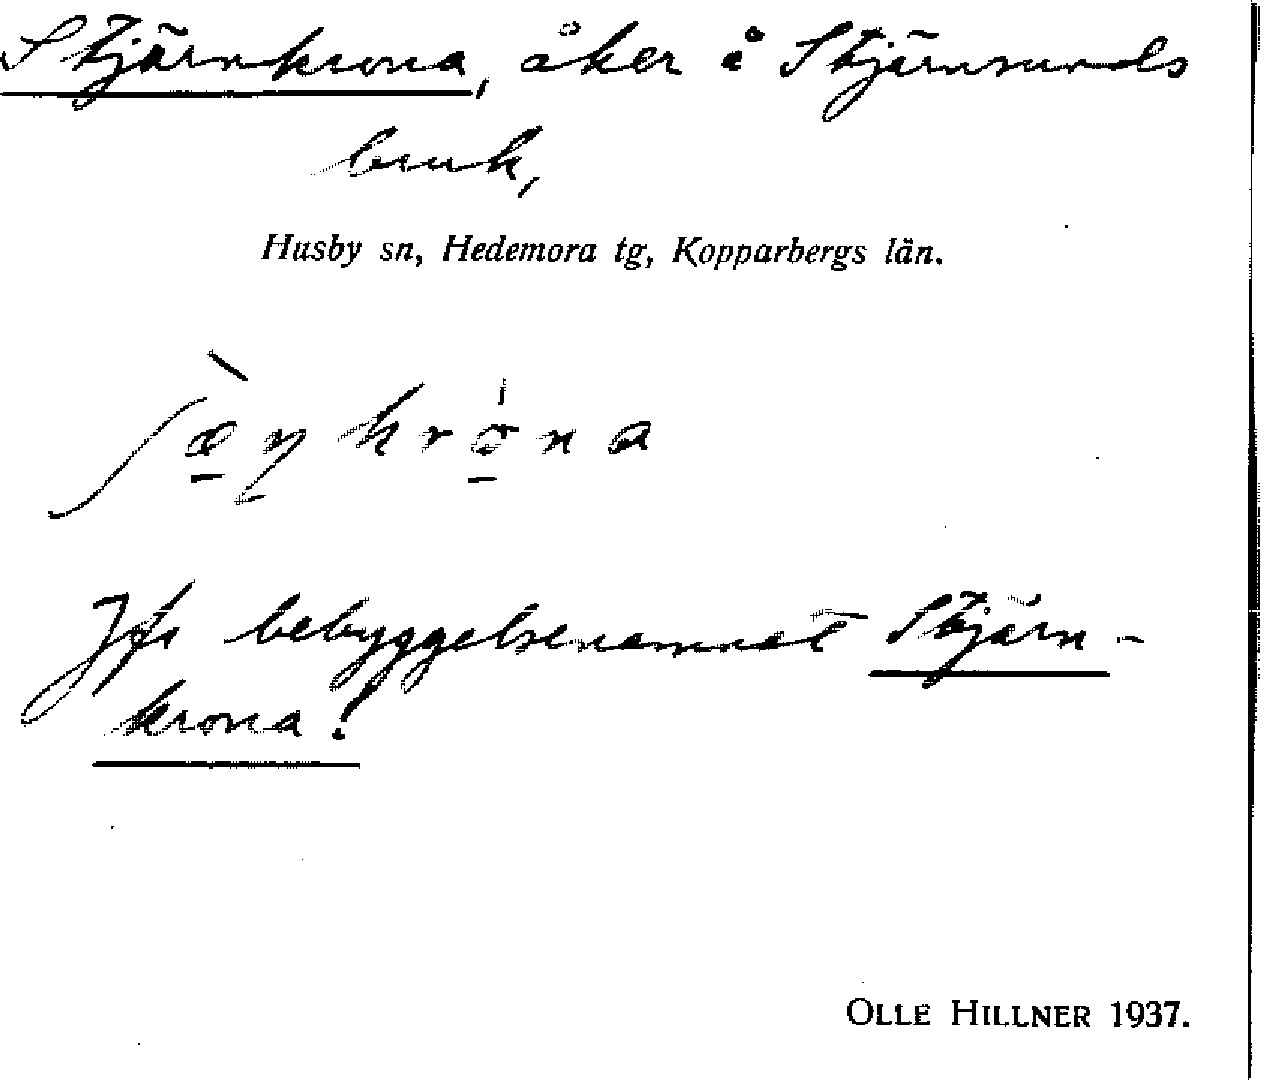 Stjärnkrona, åker å Stjärnsunds
bruk,
Husby sn, Hedemora tg, Kopparbergs län.
ʃæ̀ɳkrona
Jfr bebyggelsenamnet Stjärn-
krona!
OLLE HILLNER 1937.